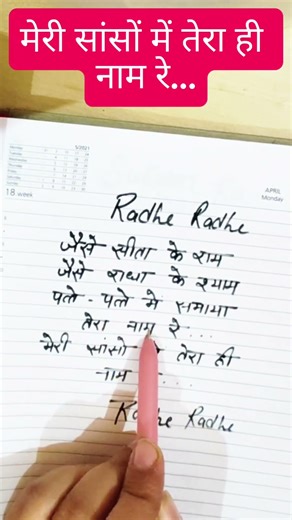 मेरी सांसों में तेरा ही
नाम रे...
18 week
APRIL
Monday
Radhe Radhe
जैसे सीता के राम
जैसे राधा के श्याम
पत्ते - पत्ते मे समाया
तेरा नाम रे ...
मेरी सांसो तेरा ही
नाम ...
Radhe Radhe